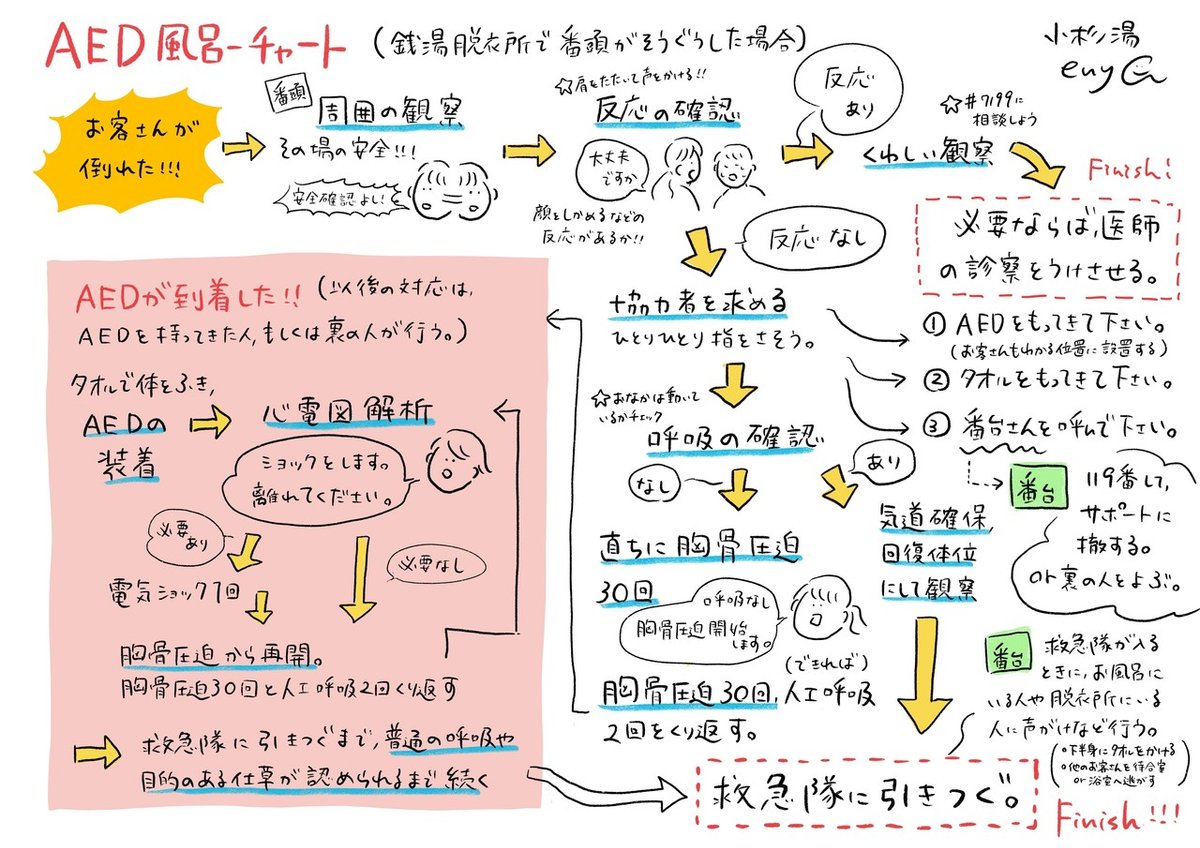 AED風呂ーチャート
(銭湯脱衣所で番頭がそうぐうした場合)
小杉湯
enya
お客さんが
倒れた!!!
番頭
周囲の観察
その場の安全!!!
安全確認よし!
☆肩をたたいて声をかける!!
反応の確認
大丈夫
ですか
顔をしかめるなどの
反応があるか!!
反応
あり
☆#7199に
相談しよう
くわしい観察
Finish!
必要ならば、医師
の診察をうけさせる。
反応なし
協力者を求める
ひとりひとり指をさそう。
① AEDをもってきて下さい。
(お客さんもわかる位置に設置する)
② タオルをもってきて下さい。
③ 番台さんを呼んで下さい。
番台
119番して、
サポートに
撤する。
or裏の人をよぶ。
☆おなかは動いて
いるかチェック
呼吸の確認
なし
あり
気道確保,
回復体位
にして観察
直ちに胸骨圧迫
30回
呼吸なし
胸骨圧迫開始
します。
(できれば)
胸骨圧迫30回,人工呼吸
2回をくり返す。
番台
救急隊が入る
ときに、お風呂に
いる人や脱衣所にいる
人に声がけなど行う。
(○下半身にタオルをかける
○他のお客さんを待合室
or浴室へ逃がす
AEDが到着した!!
(以後の対応は、
AEDを持ってきた人,もしくは裏の人が行う。)
タオルで体をふき,
AEDの
装着
心電図解析
ショックをします。
離れてください。
必要
あり
必要なし
電気ショック1回
胸骨圧迫から再開。
胸骨圧迫30回と人工呼吸2回くり返す
救急隊に引きつぐまで,普通の呼吸や
目的のある仕草が認められるまで続く
救急隊に引きつぐ。
Finish!!!